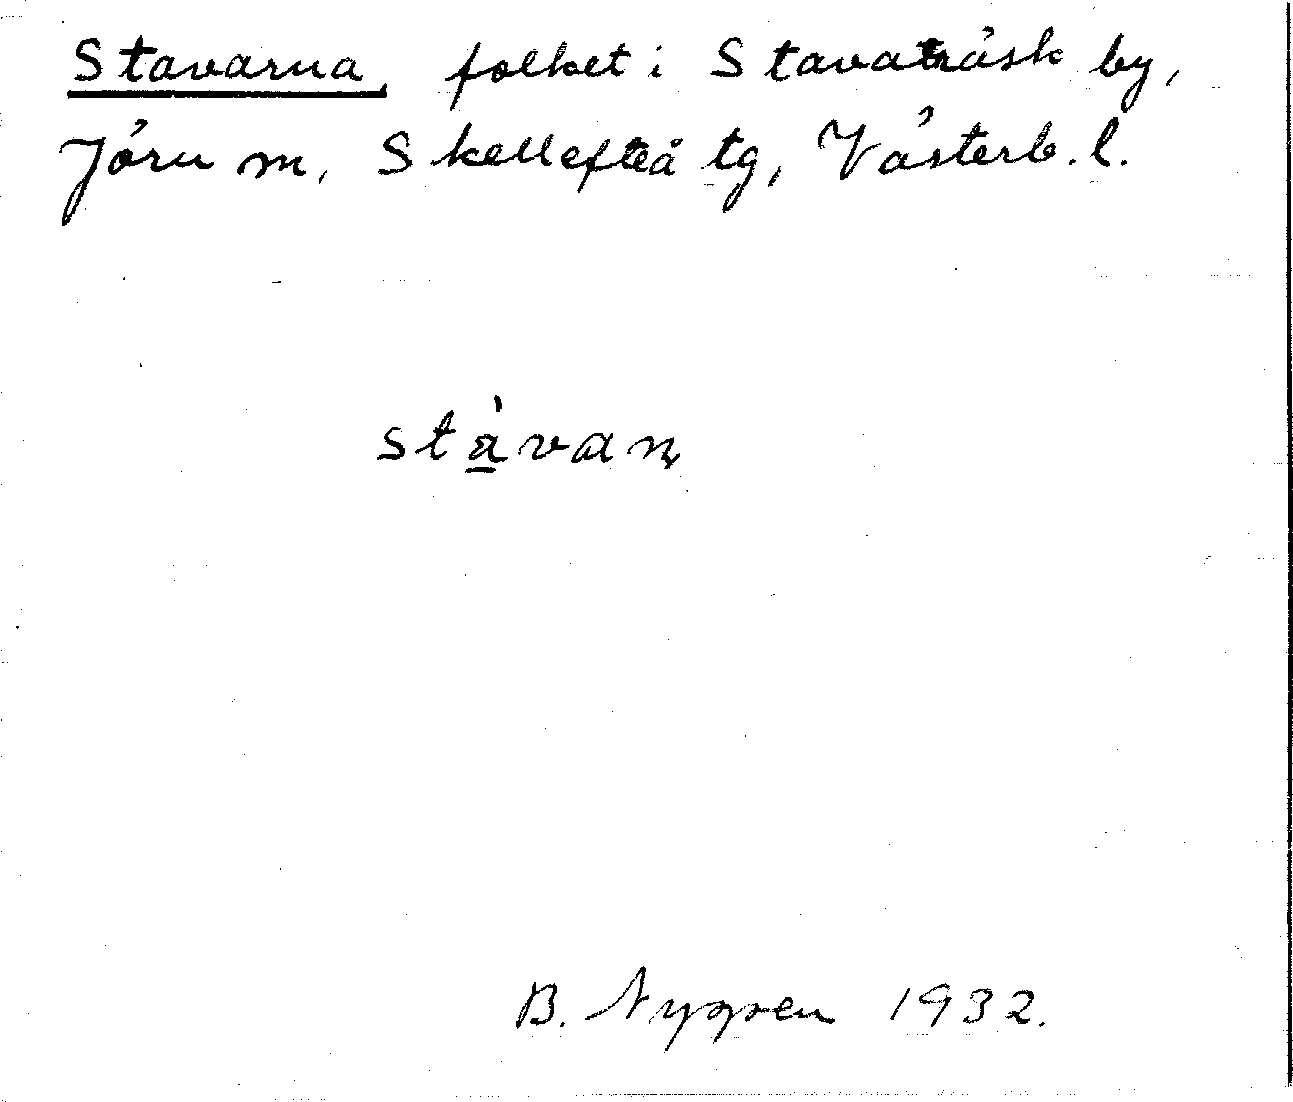 Stavarna, folket i Stavaträsk by,
Jörn m, Skellefteå tg, Västerb. l.
stà̲vaɳ
B. Nygren 1932.